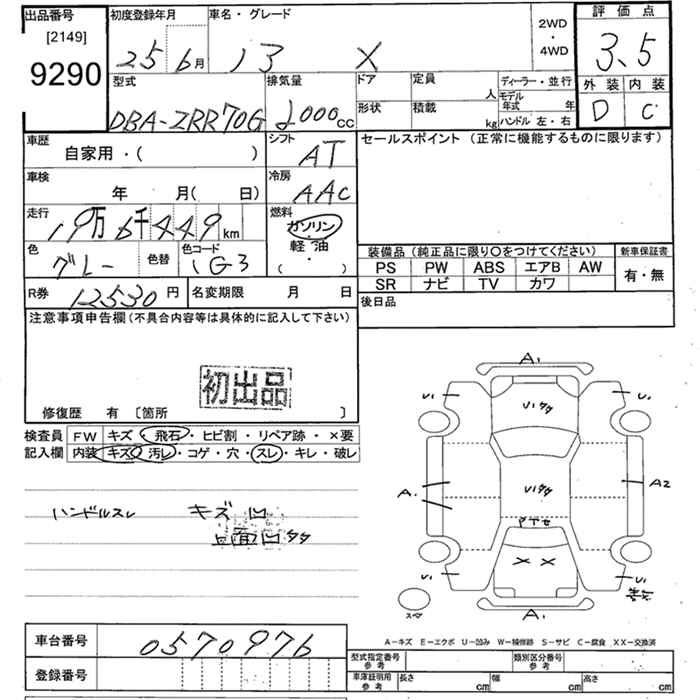 出品番号
[2149]
9290
初度登録年月
25 6月
車名・グレード
13 X
2WD
・
4WD
評価点
3.5
外装 内装
D C
型式
DBA-ZRR70G
排気量
2000cc
ドア
形状
定員 人
積載 kg
ディーラー・並行
モデル年式 年
ハンドル 左・右
車歴
自家用・( )
シフト
AT
車検
年 月( 日)
冷房
AAC
走行
19万6千449km
燃料
ガソリン
軽油
・
( )
色
グレー
色替
色コード
1G3
R券 12530円
名変期限 月 日
セールスポイント (正常に機能するものに限ります)
装備品(純正品に限り○をつけてください)
PS PW ABS エアB AW
SR ナビ TV カワ
新車保証書
有・無
後日品
注意事項申告欄(不具合内容等は具体的に記入して下さい)
初出品
修復歴 有 〔箇所 〕
検査員
記入欄
FW キズ・飛石・ヒビ割・リペア跡・×要
内装 キズ・汚レ・コゲ・穴・スレ・キレ・破レ
ハンドルスレ キズ 凹
上面凹タタ
A1
U1 U1
U1タタ
A1 U1タタ A2
××
U1 U1
スペア A1
A-キズ E-エクボ U-凹み W-補修跡 S-サビ C-腐食 XX-交換済
車台番号 0570976
登録番号
型式指定番号 参考
類別区分番号 参考
車庫証明用 参考
長さ cm 幅 cm 高さ cm